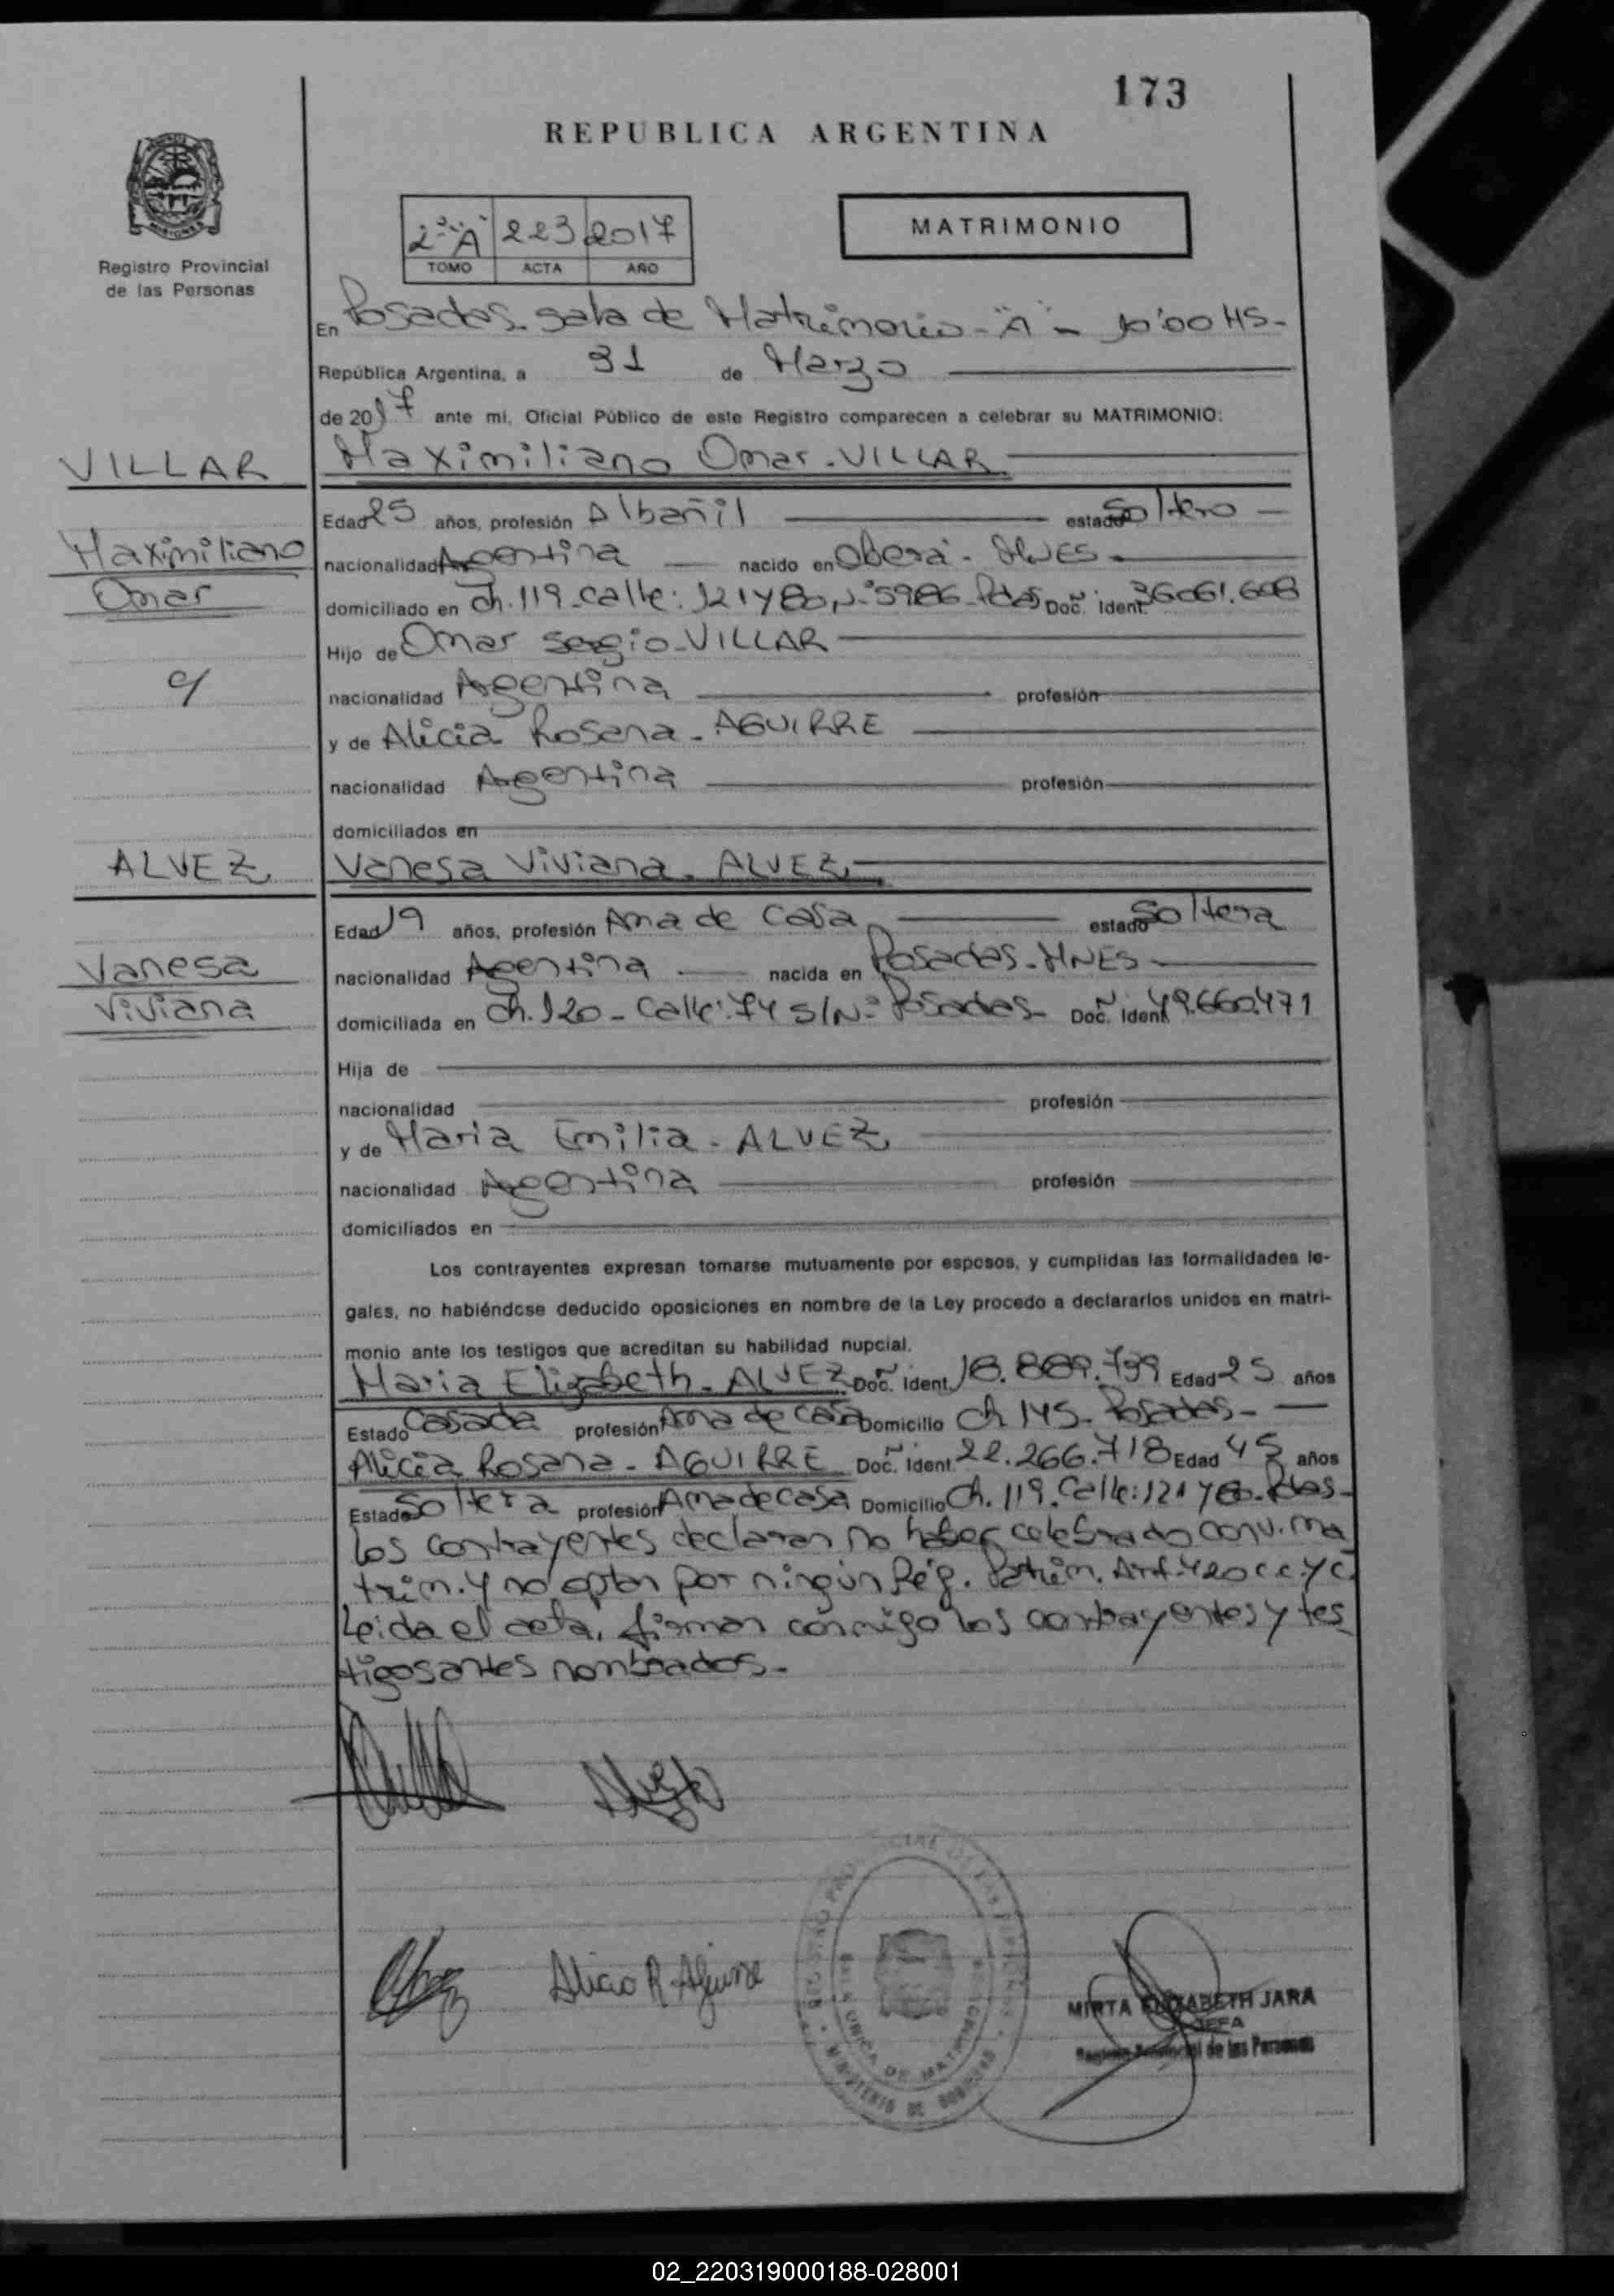 173
REPUBLICA ARGENTINA
Registro Provincial
de las Personas
2º "A" 223 2017
TOMO ACTA AÑO
MATRIMONIO
En Posadas. Sala de Matrimonio - "A" - 10'00 HS-
República Argentina, a 31 de Marzo
de 2017 ante mi, Oficial Público de este Registro comparecen a celebrar su MATRIMONIO:
VILLAR
Maximiliano Omar. VILLAR
Edad 25 años, profesión Albañil estado Soltero
Maximiliano
nacionalidad Argentina nacido en Oberá - MNES.
Omar
domiciliado en Ch. 119. Calle: 121 y 80 Nº 5986. Pdas Doc. Ident. 36.061.608
Hijo de Omar Sergio - VILLAR
c/
nacionalidad Argentina profesión
y de Alicia Rosana - AGUIRRE
nacionalidad Argentina profesión
domiciliados en
ALVEZ
Vanesa Viviana. ALVEZ
Edad 19 años, profesión Ama de Casa estado Soltera
Vanesa
nacionalidad Argentina nacida en Posadas - MNES
Viviana
domiciliada en Ch. 120 - Calle: 74 S/Nº Posadas - Doc. Ident. 49.660.471
Hija de
nacionalidad profesión
y de Maria Emilia - ALVEZ
nacionalidad Argentina profesión
domiciliados en
Los contrayentes expresan tomarse mutuamente por esposos, y cumplidas las formalidades le-
gales, no habiéndose deducido oposiciones en nombre de la Ley procedo a declararlos unidos en matri-
monio ante los testigos que acreditan su habilidad nupcial.
Maria Elizabeth - ALVEZ Doc. Ident. 18.889.799 Edad 25 años
Estado Casada profesión Ama de Casa Domicilio Ch 145 - Posadas -
Alicia Rosana - AGUIRRE Doc. Ident. 22.266.718 Edad 45 años
Estado Soltera profesión Ama de casa Domicilio Ch. 119. Calle: 121 y 80. Pdas -
Los contrayentes declaran no haber celebrado conv. ma
trim. y no optan por ningún Rég. Patrim. Art. 420 C.C. y C.
Leida el acta, firman conmigo los contrayentes y tes
tigos antes nombrados.-
Alicia R. Aguirre
MIRTA ELIZABETH JARA
JEFA
Registro Provincial de las Personas
02_220319000188-028001